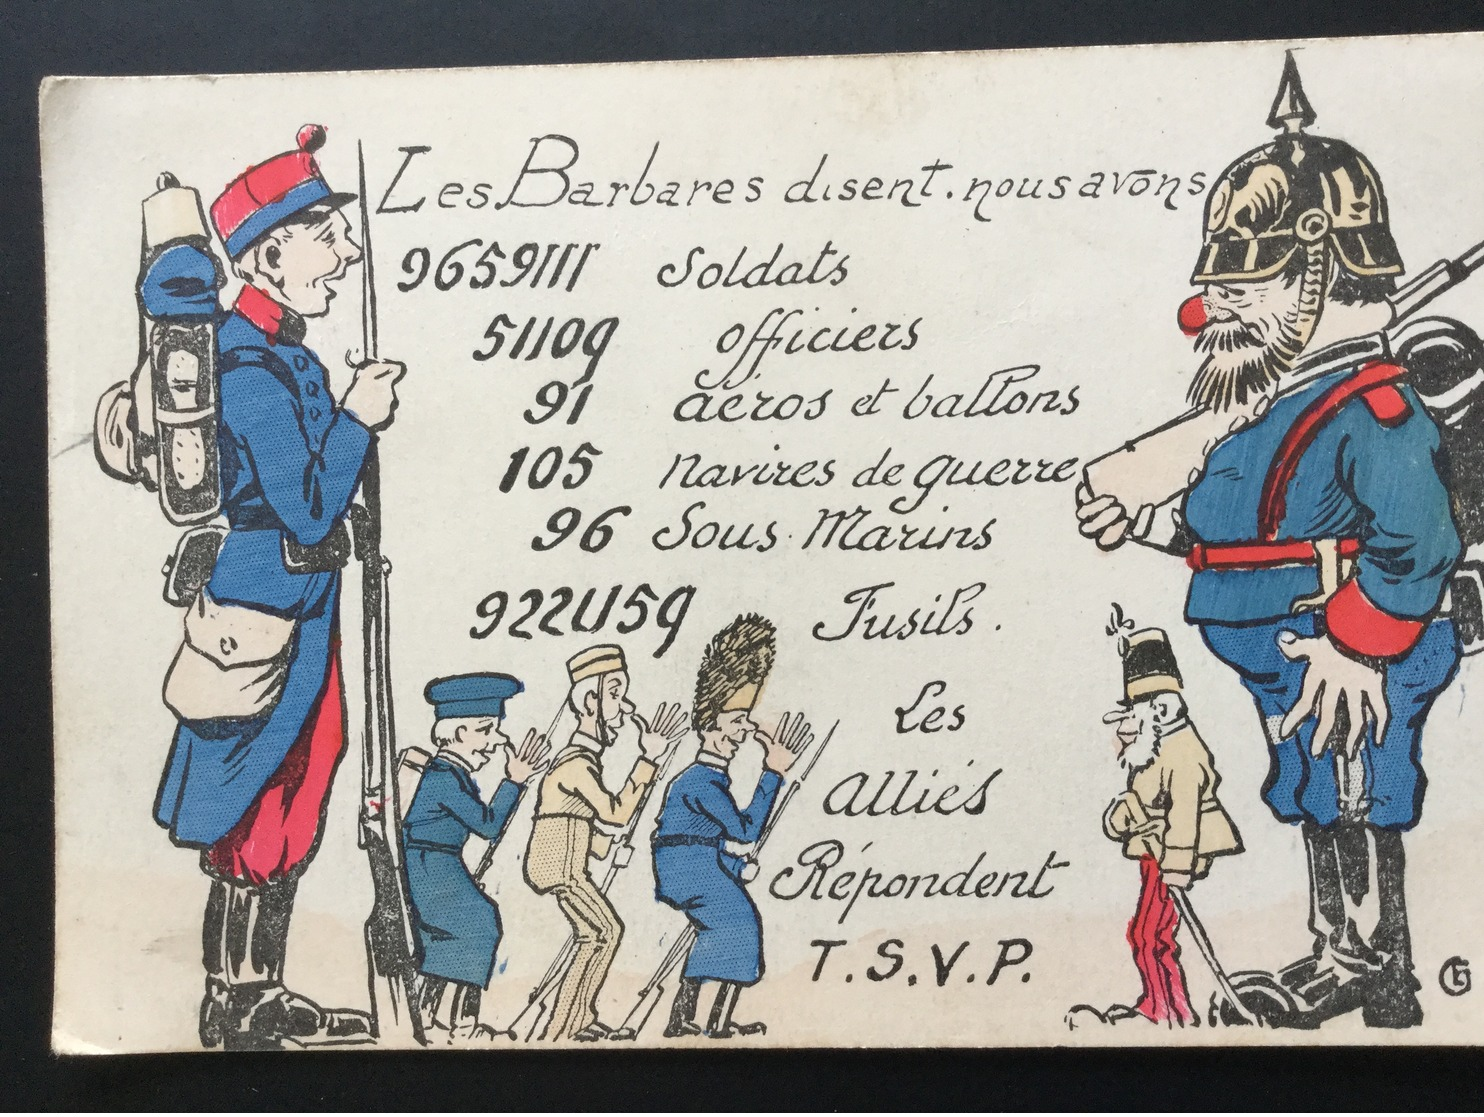 Les Barbares disent. nous avons
9659111 Soldats
51109 officiers
91 aéros et ballons
105 navires de guerre
96 Sous Marins
922459 Fusils.
Les
Alliés
Répondent
T.S.V.P.